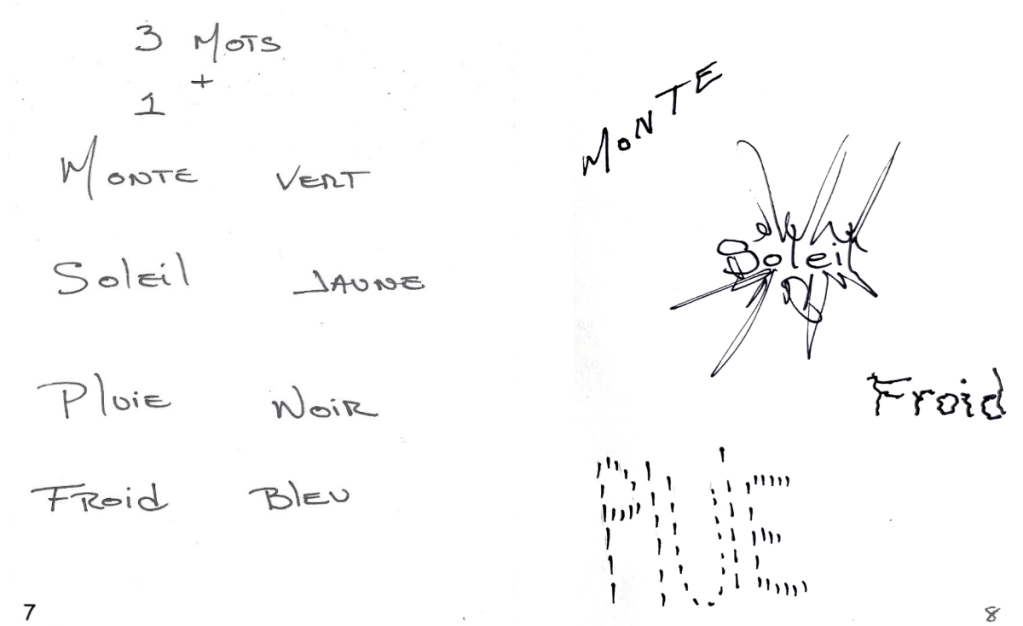 3 MOTS
+
1
MONTE VERT
SOLEIL JAUNE
PLUIE NOIR
FROID BLEU
7
MONTE
Soleil
Froid
PlUiE
8